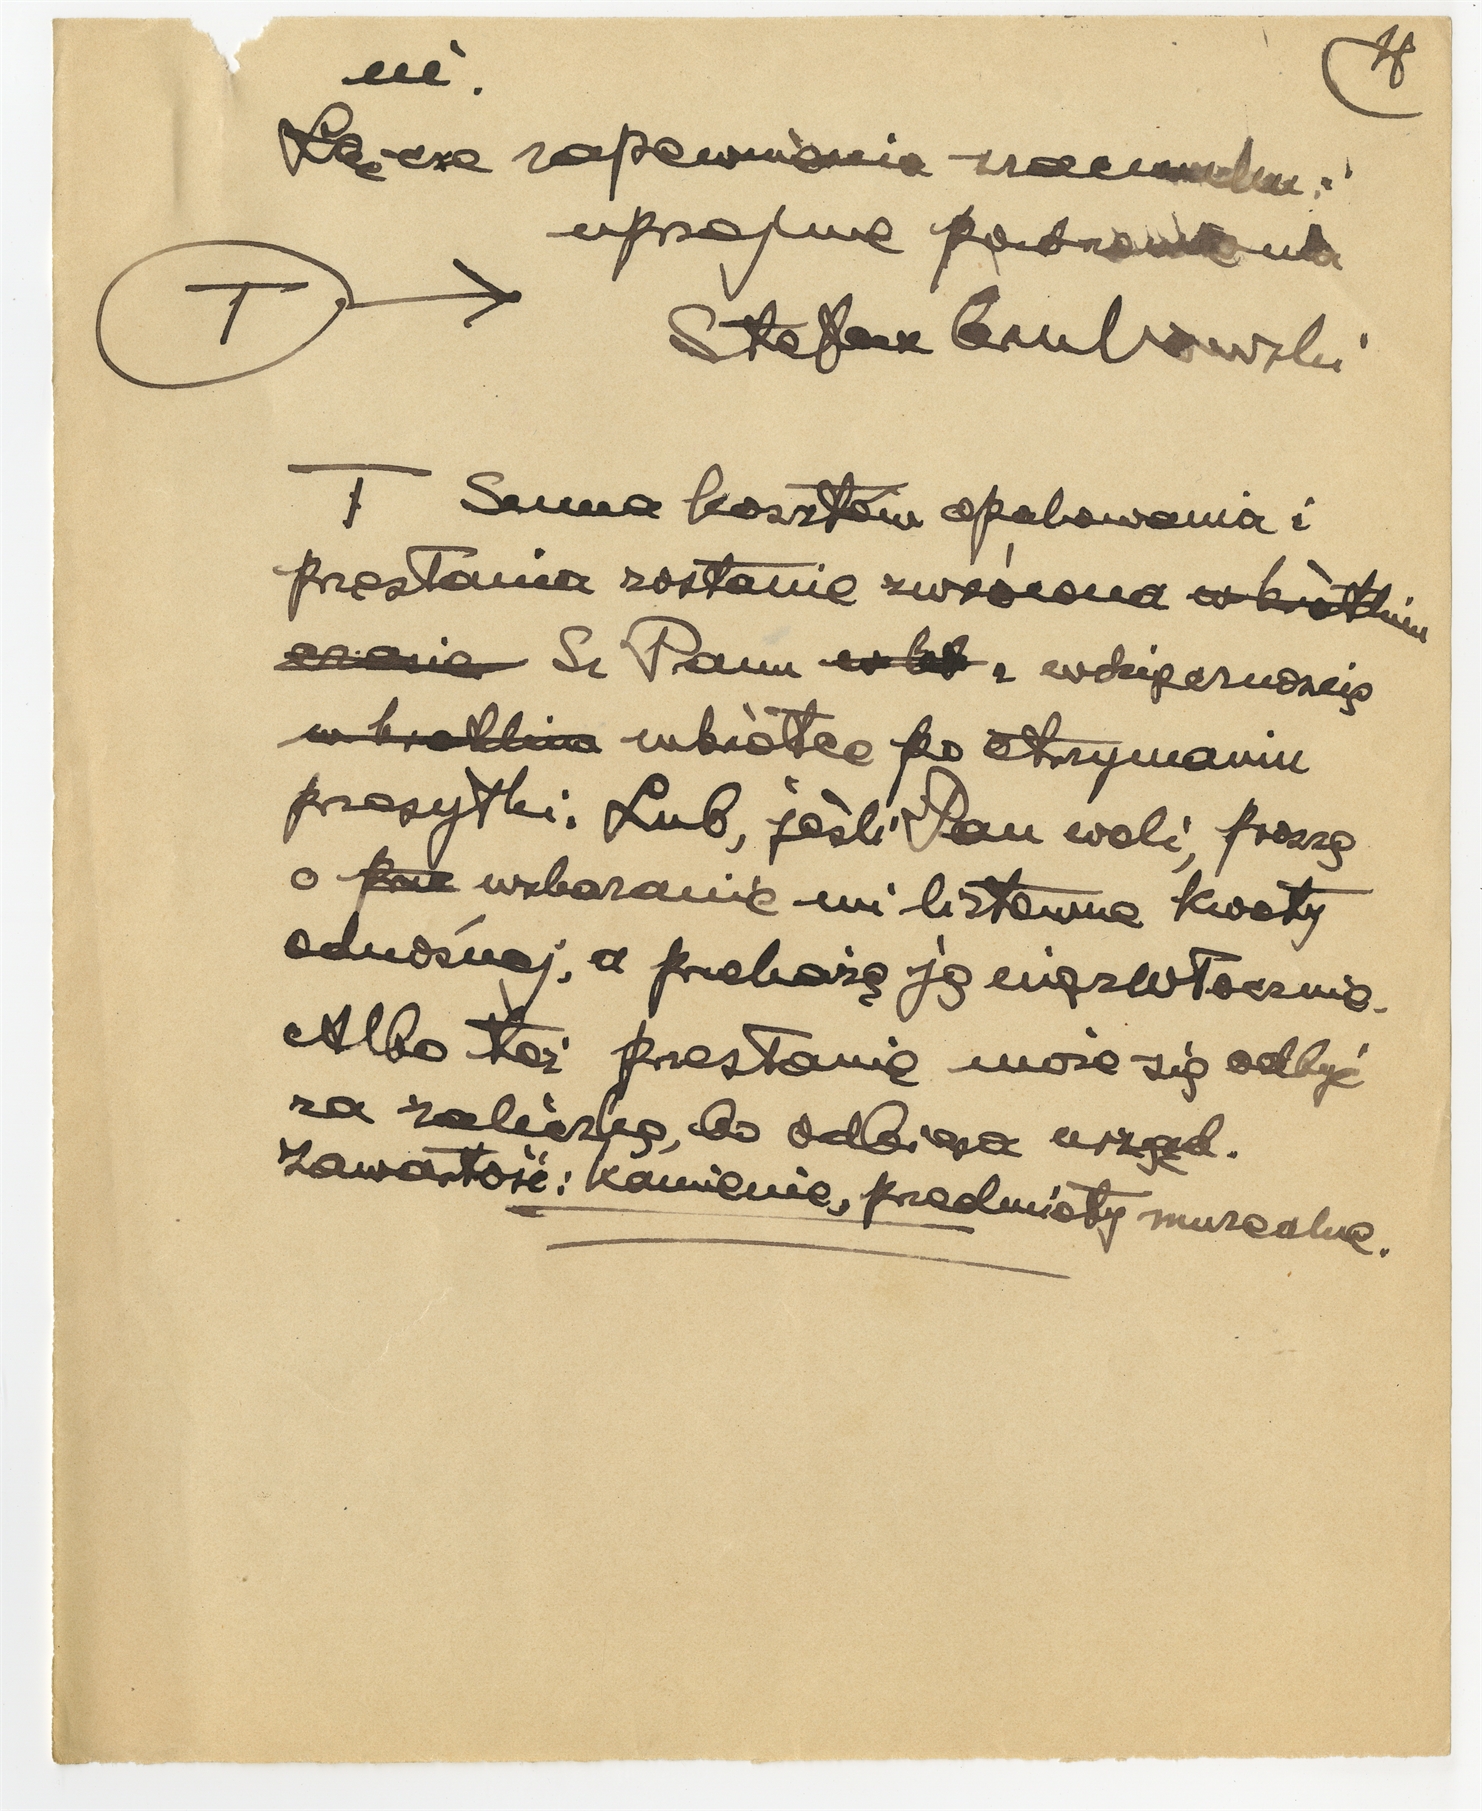 ni.
Łączę zapewnienia szacunku i
uprzejme pozdrowienia
T → Stefan Szulkowski
T Suma kosztów opakowania i
przesłania zostanie zwrócona w krótkim
czasie Sz Panu z wdzięcznością
w krótkim wkrótce po otrzymaniu
przesyłki. Lub, jeśli Pan woli, proszę
o wskazanie mi listowne kwoty
odnośnej, a przekażę ją niezwłocznie.
Albo też przesłanie może się odbyć
za zaliczką, co odbiega urzęd.
Zawartość: kamienie, przedmioty muzealne.